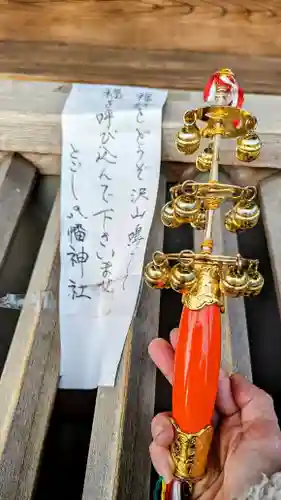 鈴をどうぞ沢山鳴らし
福を呼び込んで下さいませ
とごし八幡神社